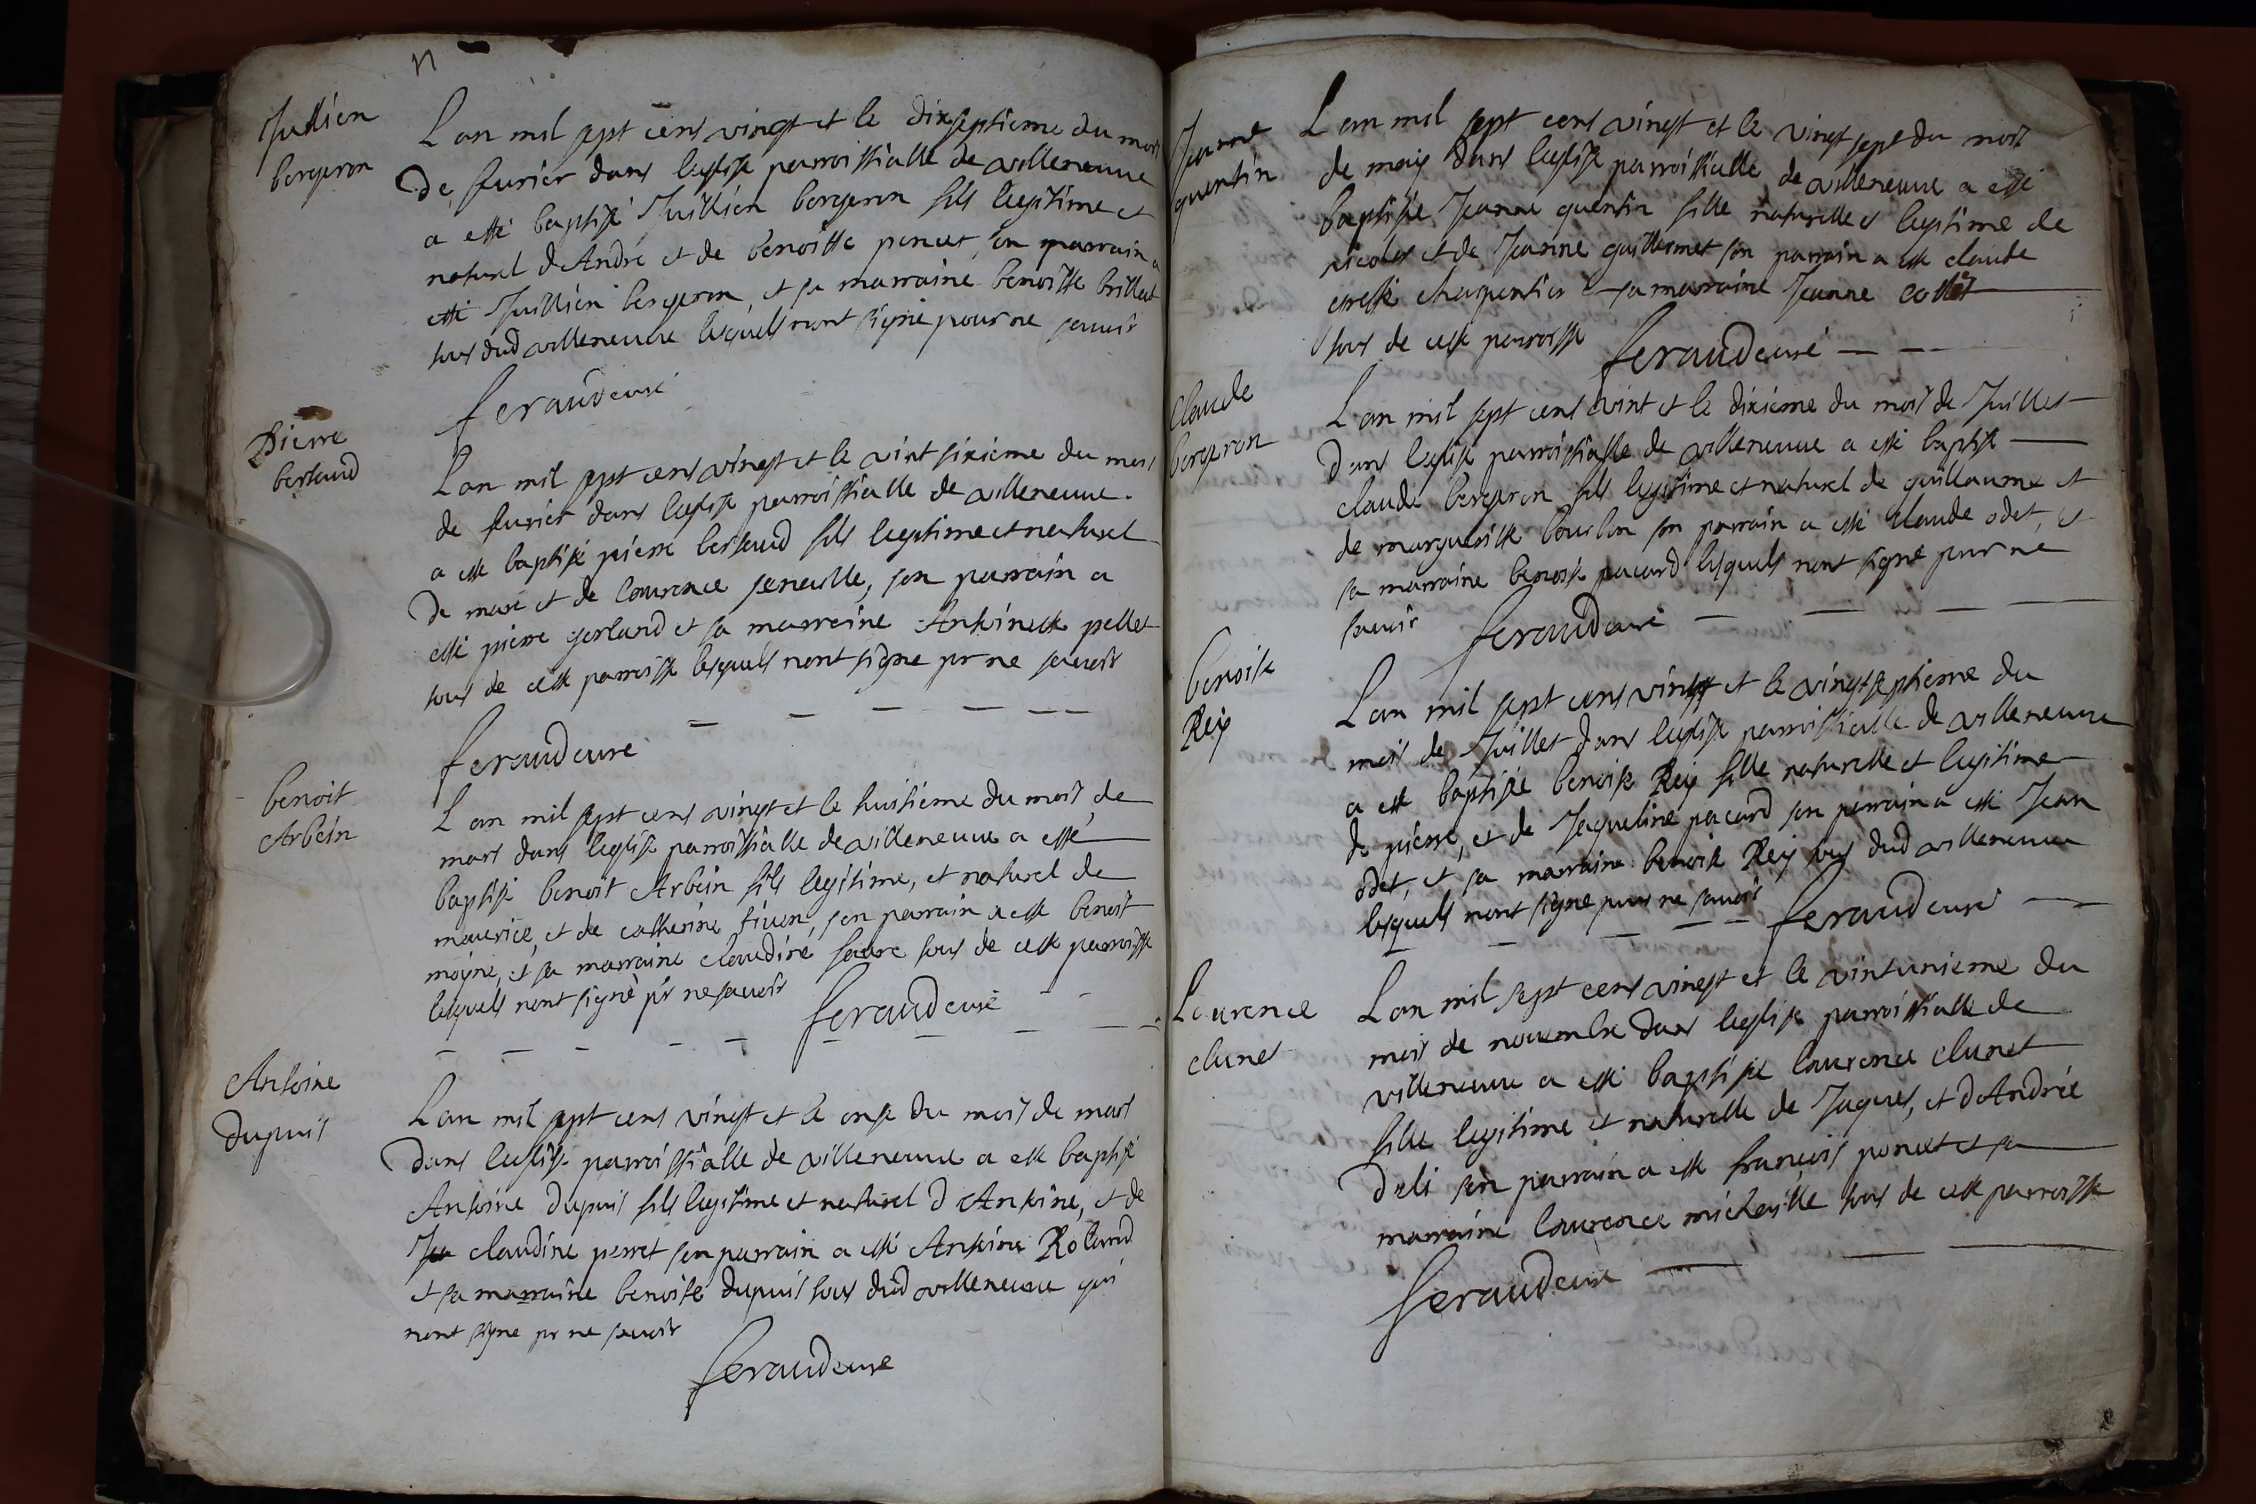 n
Juillien
bergeron
Lan mil sept cens vingt et le dixseptieme du mois
de feurier dans leglise parroissialle de villeneuue
a esté baptisé Juillien bergeron fils legitime et
naturel dAndré et de benoitte poncet, son parrain a
esté Juillien bergeron, et sa marraine benoitte brillat
tous dud villeneuue lesquels nont signé pour ne scauoir
feraud curé
Pierre
bertaud
Lan mil sept cens vingt et le vint sixieme du mois
de feurier dans leglise parroissialle de villeneuue.
a esté baptisé pierre bertaud fils legitime et naturel
de marc et de laurence seneville, son parrain a
esté pierre gerland et sa marraine Antoinette pellet
tous de cette parroisse lesquels nont signe pr ne scauoir
feraud curé
benoit
Arbein
Lan mil sept cens vingt et le huitieme du mois de
mars dans leglise parroissialle de villeneuue a esté
baptisé benoit Arbein fils legitime, et naturel de
maurice, et de catherine siuen, son parrain a esté benoit
moyne, et sa marraine claudine faure tous de cette parroisse
lesquels nont signé pr ne scauoir feraud curé
Antoine
dupuis
Lan mil sept cens vingt et le onze du mois de mars
dans leglise parroissialle de villeneuue a esté baptisé
Antoine dupuis fils legitime et naturel dAntoine, et de
claudine perret son parrain a esté Antoine Roland
et sa marraine benoite dupuis tous dud villeneuue qui
nont signe pr ne scauoir
feraud curé
Jeanne
quentin
Lan mil sept cens vingt et le vingt sept du mois
de may dans leglise parroissialle de villeneuue a esté
baptisée Jeanne quentin fille naturelle et legitime de
nicolas et de Jeanne guillermet son parrain a esté claude
charpentier et sa marraine Jeanne collet
tous de cette parroisse feraud curé
claude
bergeron
Lan mil sept cens vint et le dixieme du mois de Juillet
dans leglise parroissialle de villeneuue a esté baptisé
claude bergeron fils legitime et naturel de guillaume et
de margueritte bourbon son parrain a esté claude odet, et
sa marraine benoite pacard lesquels nont signé pour ne
scauoir feraud curé
benoite
Rey
Lan mil sept cens vingt et le vingt septieme du
mois de Juillet dans leglise parroissialle de villeneuue
a esté baptisée benoite Rey fille naturelle et legitime
de pierre, et de Jaqueline pacard son parrain a esté Jean
odet, et sa marraine benoite Rey tous dud villeneuue
lesquels nont signe pour ne scauoir feraud curé
Laurence
clunet
Lan mil sept cens vingt et le vintunieme du
mois de nouembre dans leglise parroissialle de
villeneuue a esté baptisée laurence clunet
fille legitime et naturelle de Jaques, et dAndrée
deli son parrain a esté françois poncet et sa
marraine laurence micheville tous de cette parroisse
feraud curé